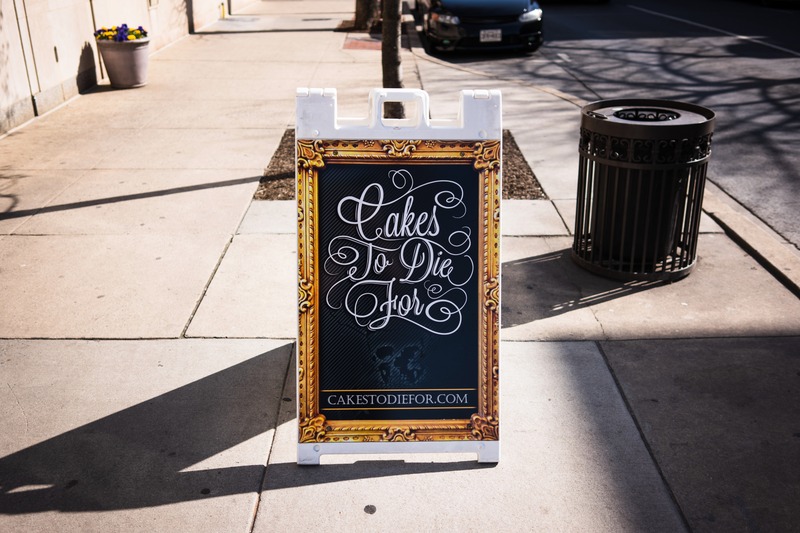 Cakes
To Die
For
CAKESTODIEFOR.COM